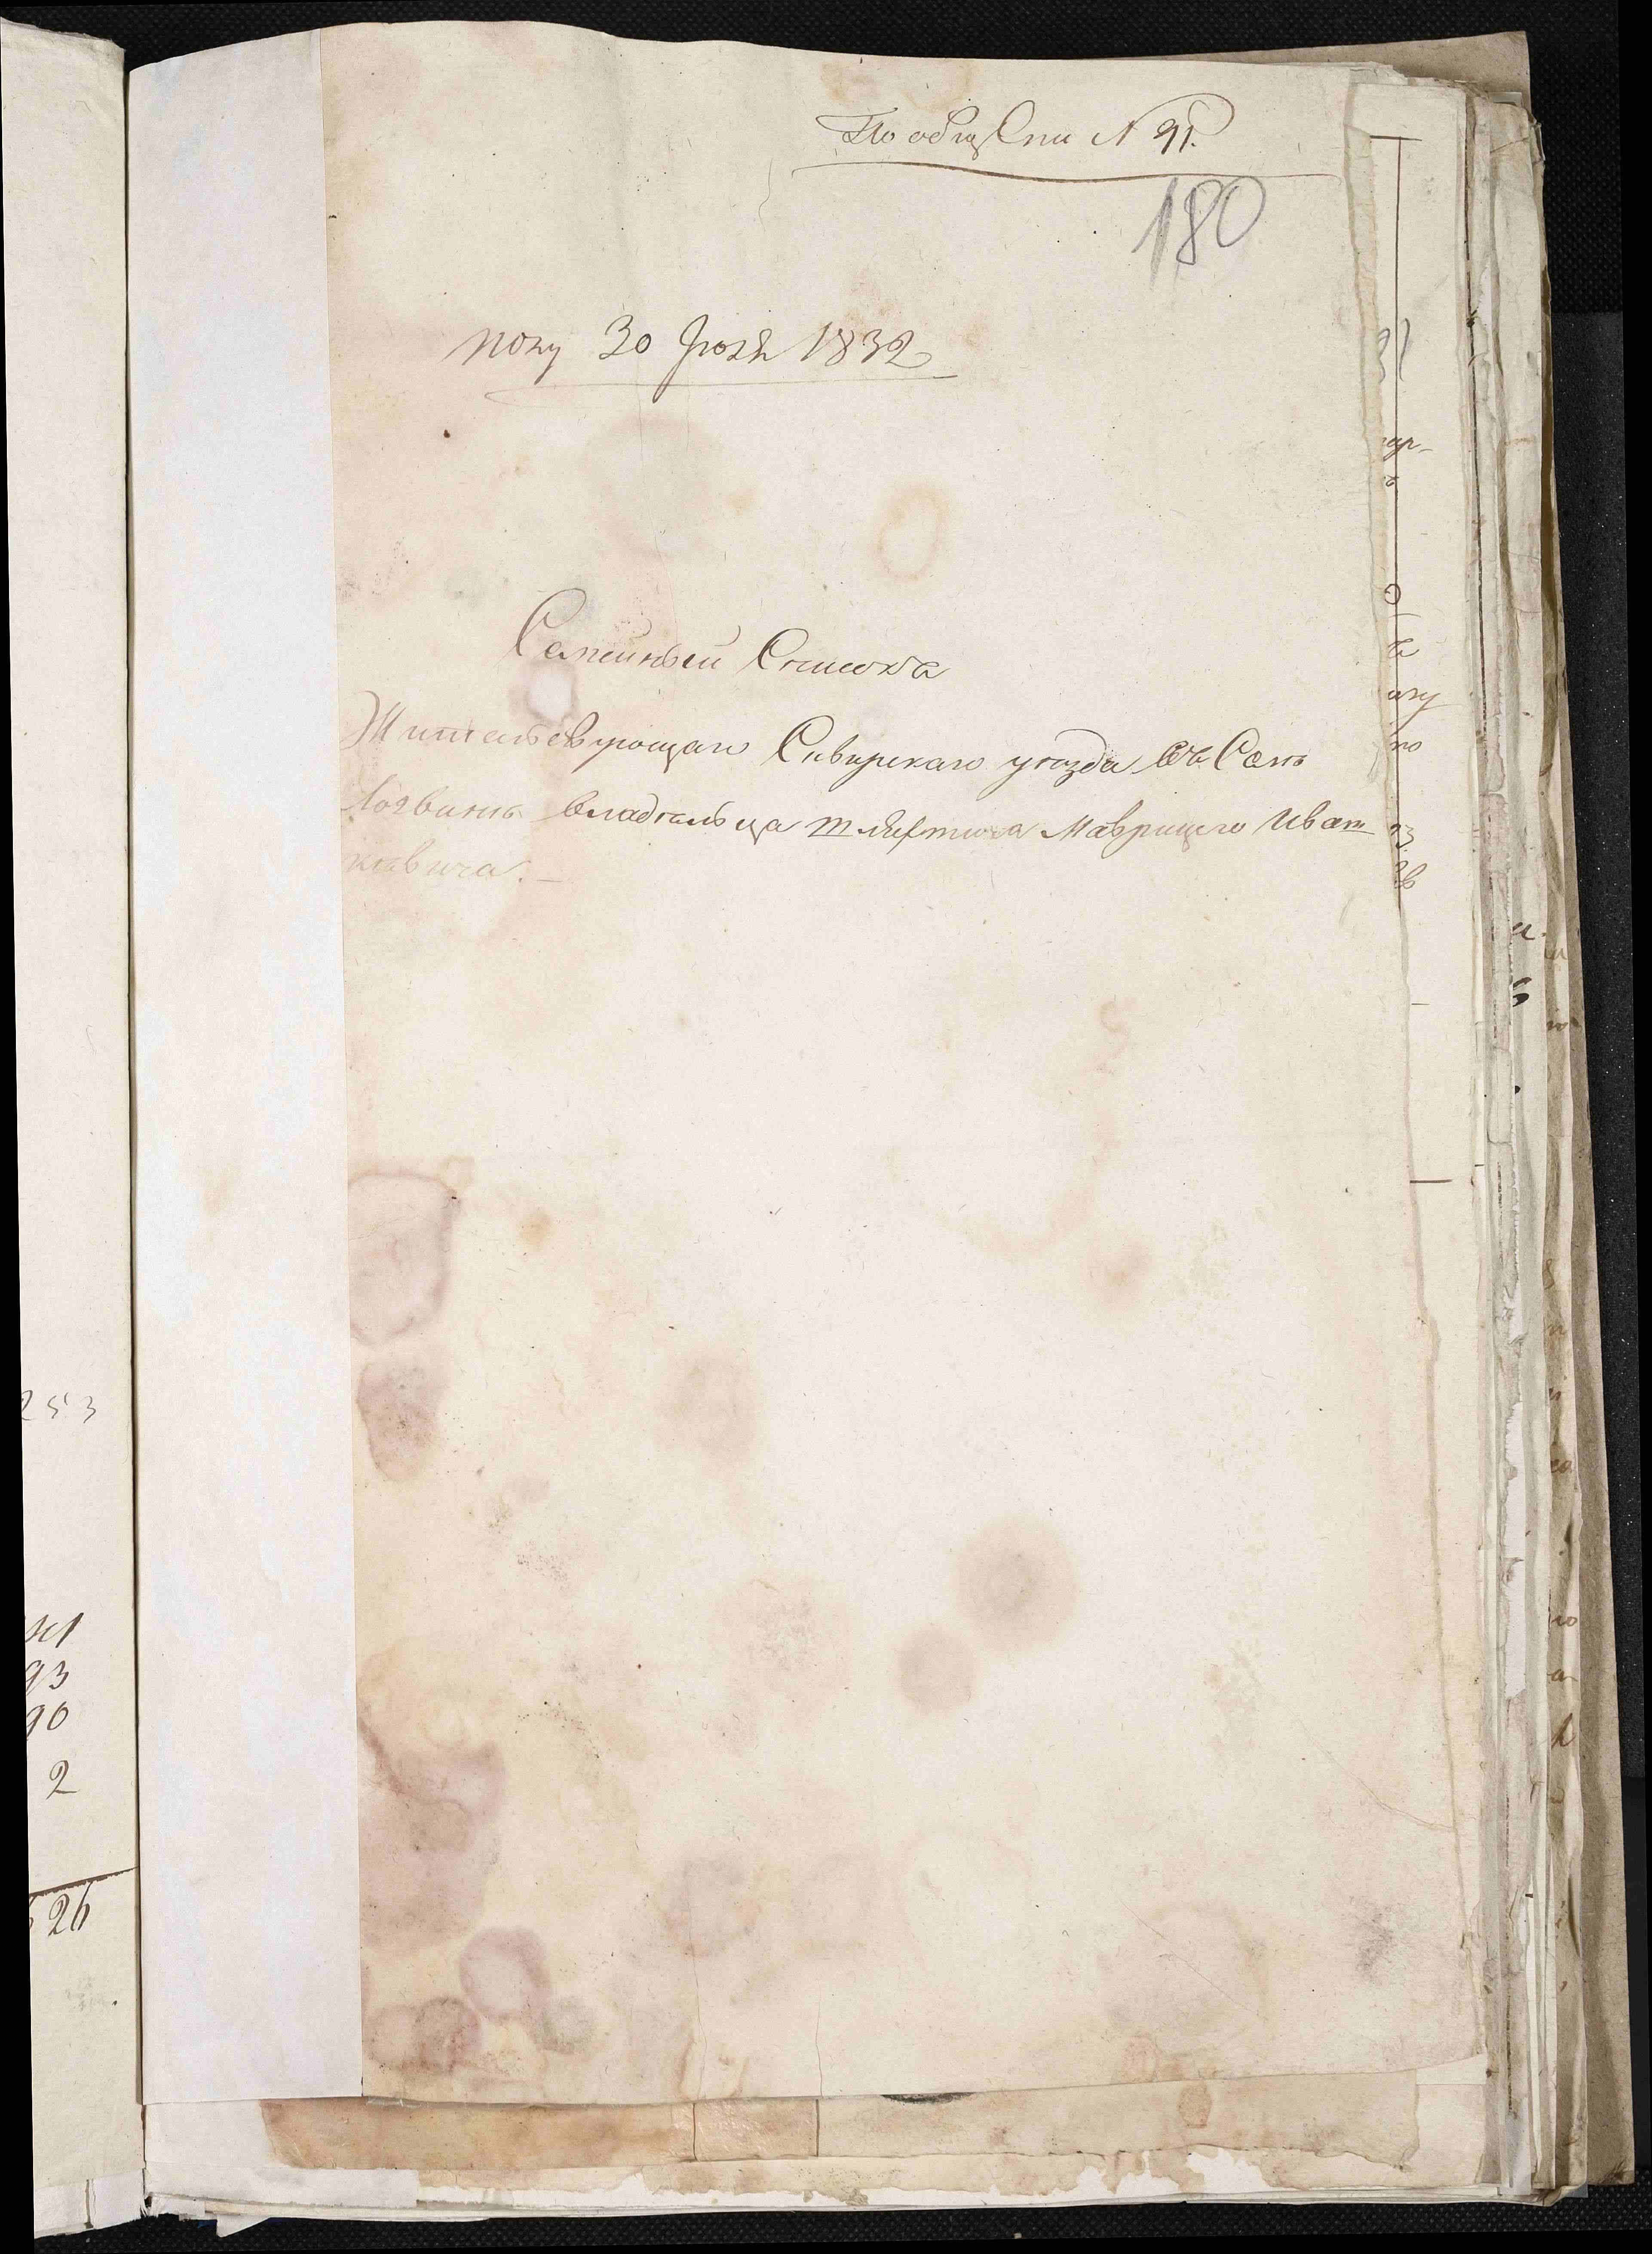 По общ Опи N 91.
180
полу 30 Июля 1832
Семейный Списокъ
Жительствующаго Сквирскаго уезда въ Селе
Логвине владельца шляхтича Маврицего Иван
кевича. —
253
93
90
2
26